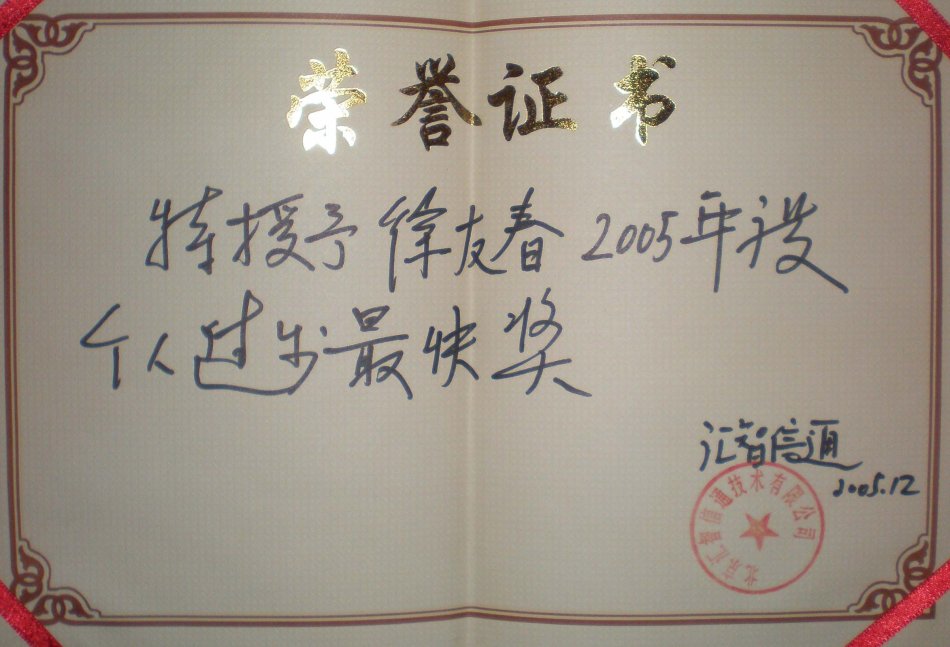 荣誉证书
特授予徐友春2005年设
个人进步最快奖
汇智信通
2005.12
北京汇智信通技术有限公司